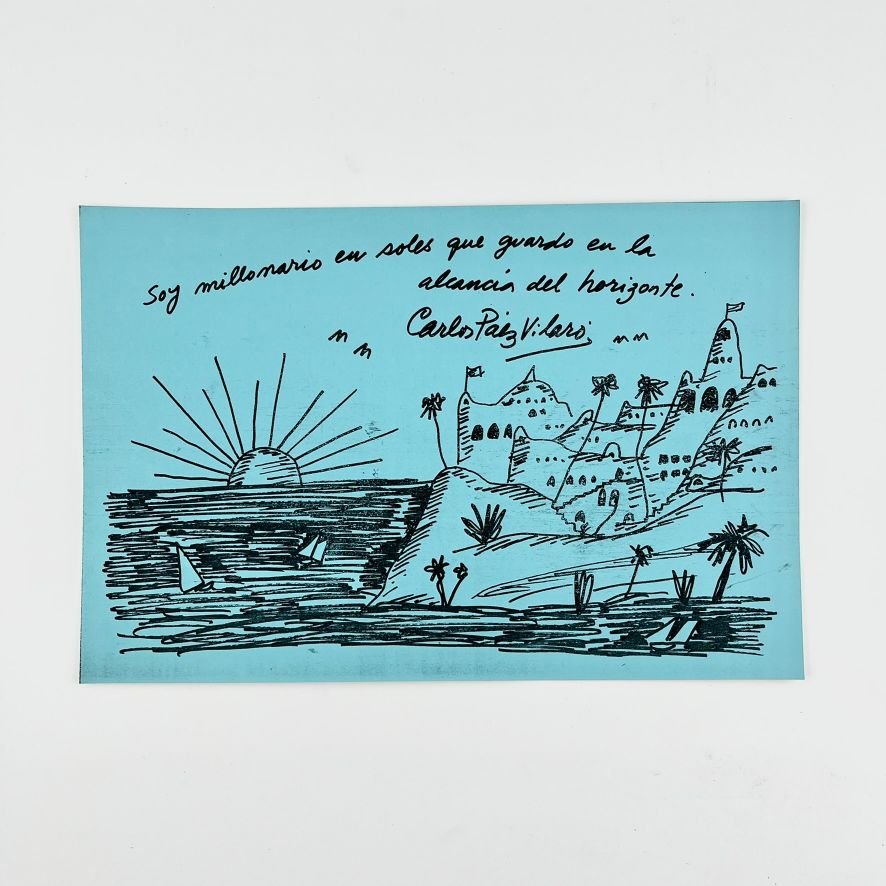 Soy millonario en soles que guardo en la
alcancía del horizonte.
Carlos Páez Vilaró